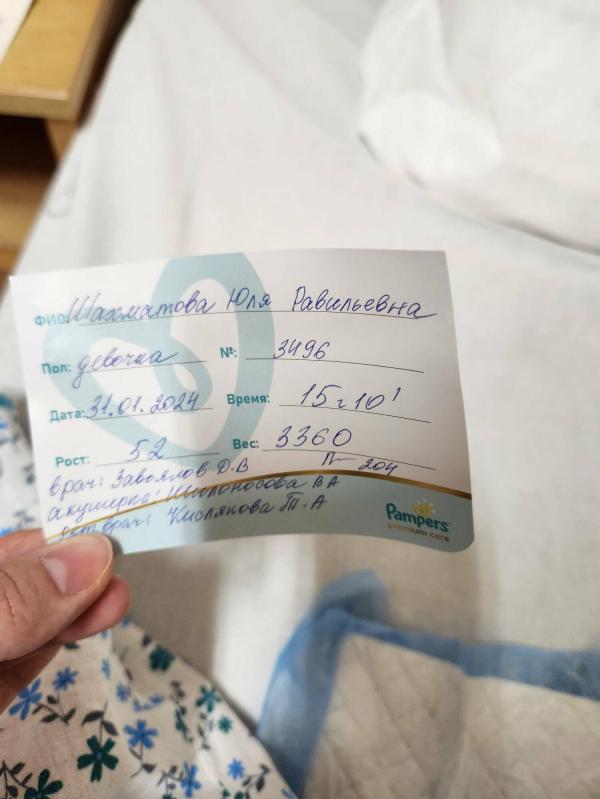 ФИО: Шахматова Юля Равильевна
Пол: девочка №: 3496
Дата: 31.01.2024 Время: 15 ч 10'
Рост: 52 Вес: 3360
П– 204
врач: Завьялов Д.В
акушерка: ВА
дет врач: Кислякова Т.А
Pampers
premium care